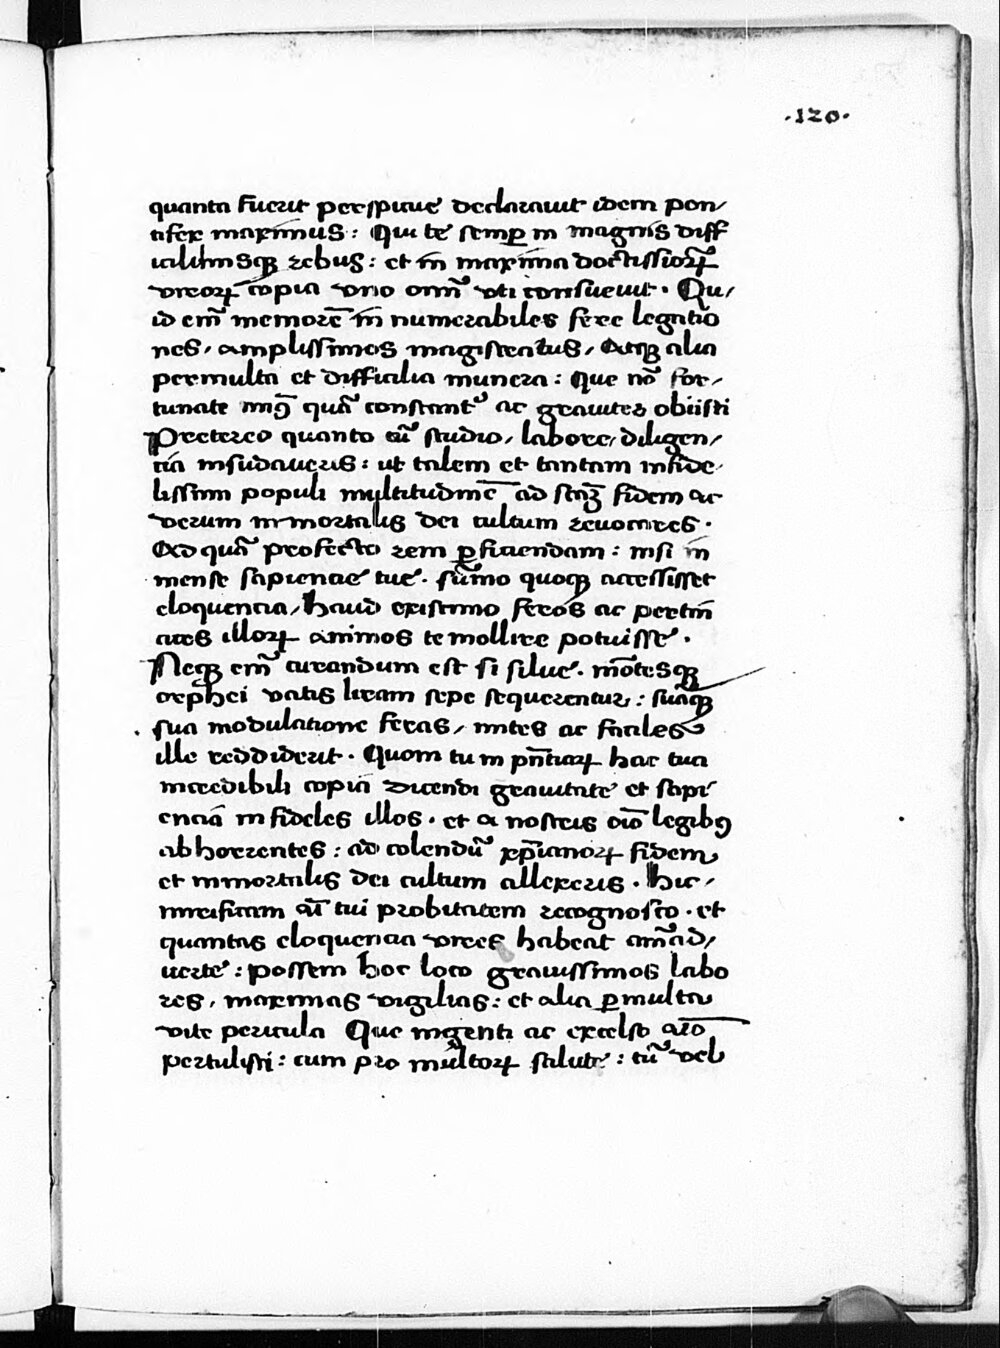 ·120·
quanta fuerit perspicue declarauit idem pon/
tifex maximus: Qui te semꝑ in magnis diff
icilimisqꝫ rebus: et in maxima doctissioꝝ
vireoꝝ copia vno om̄ vti consueuit. Qu/
id em̄ memorē in numerabiles fere legatiō
nes, amplissimos magistratus, Atqꝫ alia
permulta et difficilia munera: Que nō for/
tunate mīꝰ quā constantʳ ac grauiter obiisti
Preterea quanto cū studio, labore, diligen/
tia insudaueris: ut talem et tantam infide
lissimi populi multitudinē ad sctāꝫ fidem ac
verum inmortalis dei cultum reuocares.
Ad quā profecto rem ꝑficiendam: nisi in
mense sapienciae tue. sūmo quoqꝫ accessisset
eloquencia, haud existimo feros ac pertin
aces illoꝝ animos te mollire potuisse.
Neqꝫ em̄ curandum est si silue. mōtesqꝫ
orphei vatis liram sepe sequerentur: suaqꝫ
sua modulatione feras, mites ac faciles
ille reddiderit. Quom tu in pn̄tiaꝝ hac tua
incredibili copia dicendi grauitate et sapi
enciā infideles illos. et a nostris oīo legibꝰ
abhorrentes: ad colendū xp̄ianoꝝ fidem
et inmortalis dei cultum allexeris. hic/
mirificam cū tui probitatem recognosco. et
quantas eloquencia vires habeat aīmad/
uerte: possem hoc loco grauissimos labo
res, maximas vigilias: et alia ꝑmulta
vite pericula Que ingenti ac excelso aīo
pertulisti: cum pro multoꝝ salute: tū vel